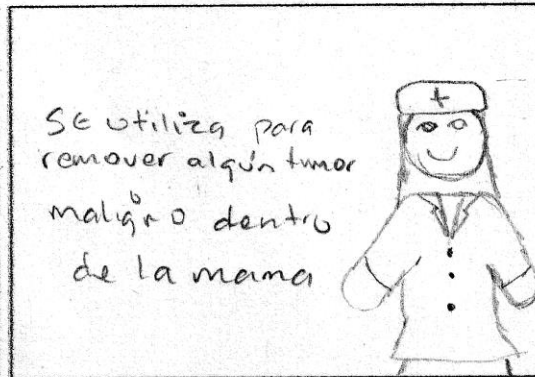 SE utiliza para
remover algún tumor
maligno dentro
de la mama